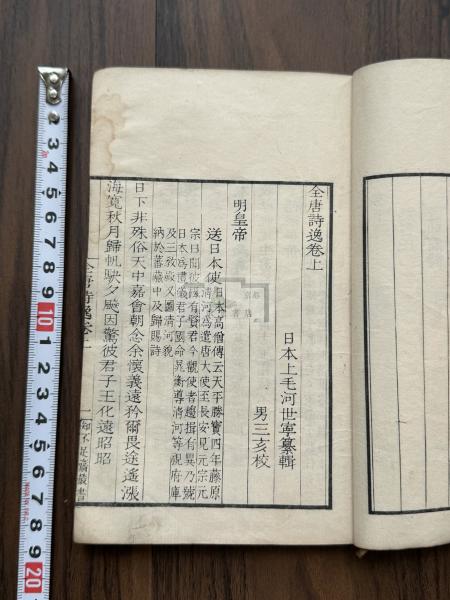 全唐詩逸卷上
日本上毛河世寧纂輯
男三亥校
明皇帝
送日本使
日本高僧傳云天平勝寶四年藤原
清河為遣唐大使至長安見元宗元
宗曰聞彼國有賢君今觀使者趨揖有異乃號
日本為禮儀君子國命晁衡導清河等視府庫
及三教殿又圖清河貌
納於蕃藏中及歸賜詩
日下非殊俗天中嘉會朝念余懷義遠矜爾畏途遙漲
海寬秋月歸帆駛夕飈因驚彼君子王化遠昭昭
全唐詩逸卷上
一
知不足齋叢書
2 3 4 5 6 7 8 9 10 1 2 3 4 5 6 7 8 9 20